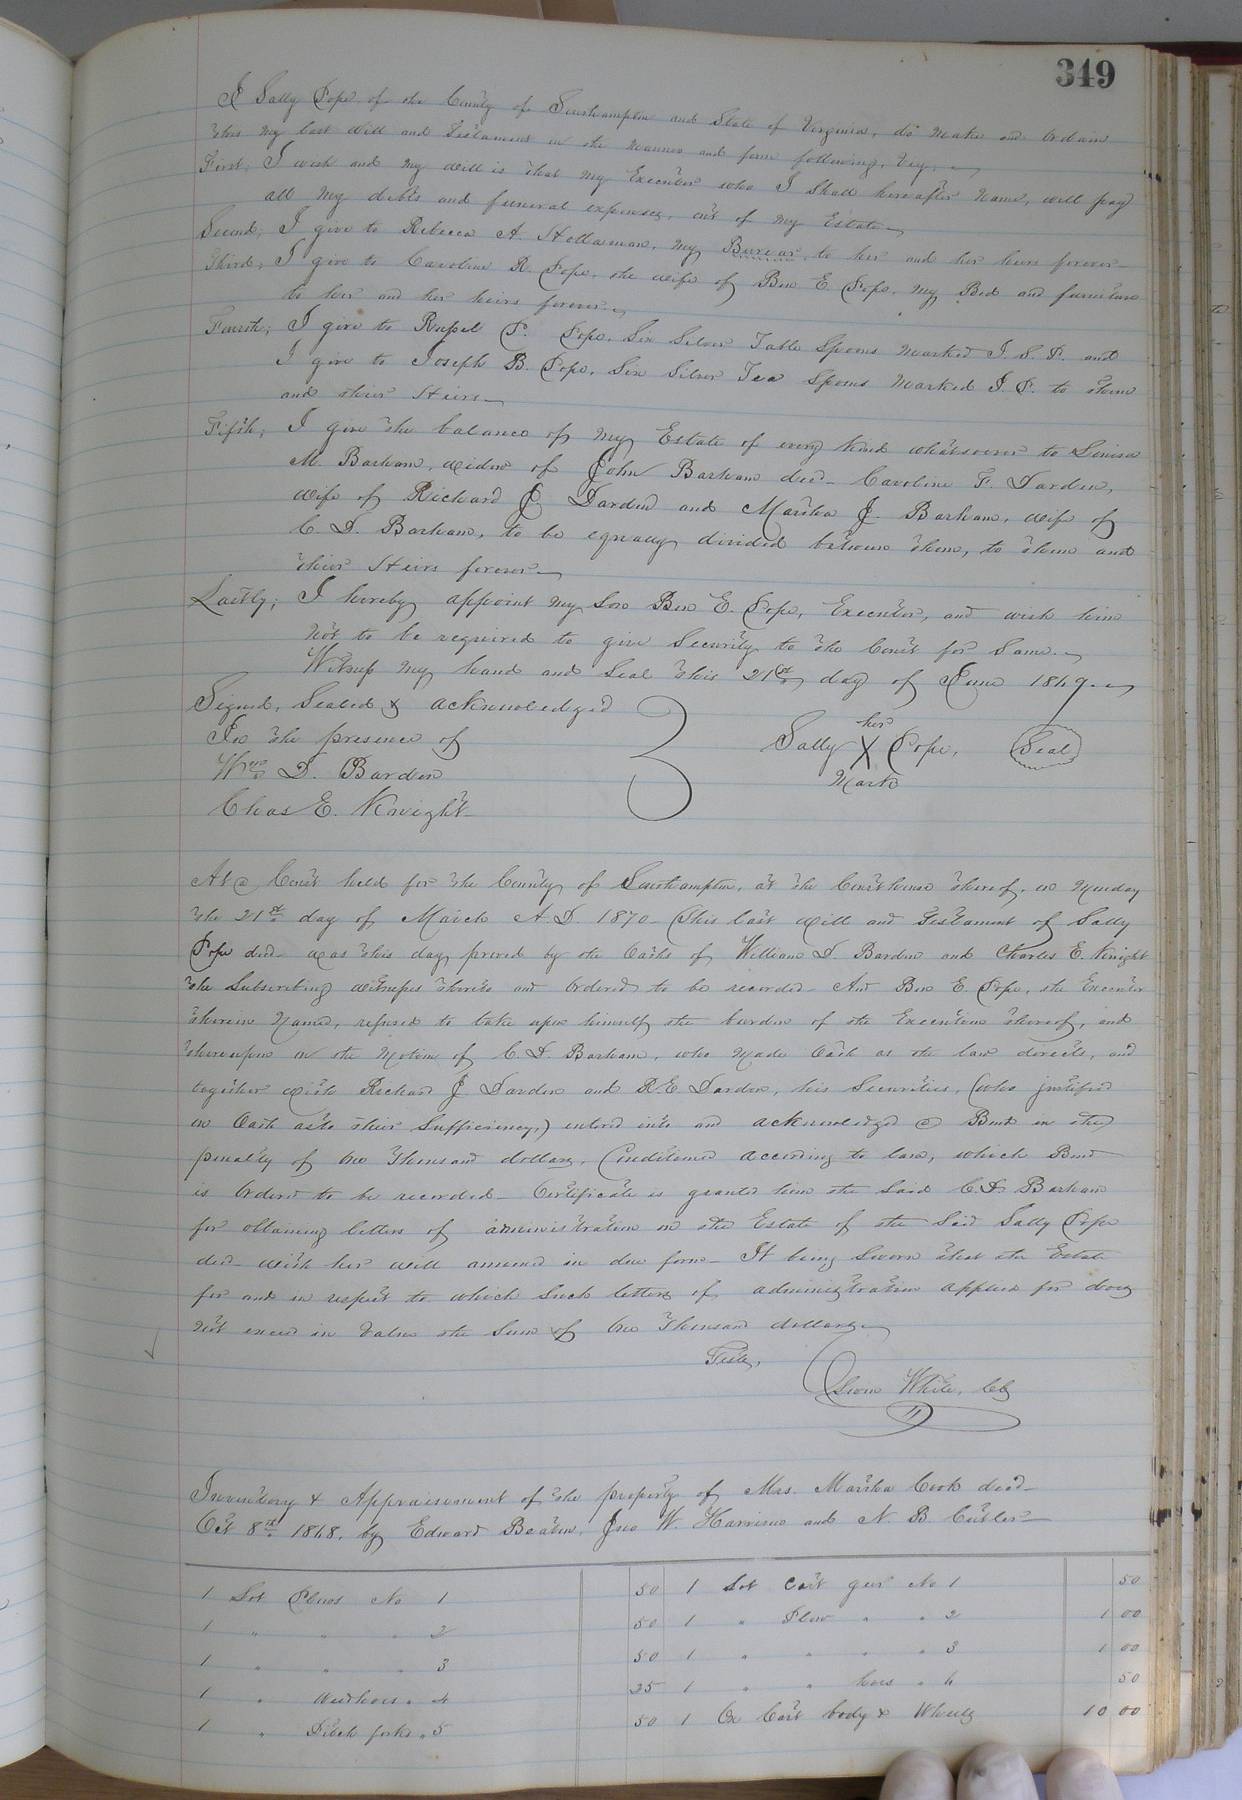 349
I Sally Pope of the County of Southampton and State of Virginia, do make and Ordain
this my last Will and Testament in the manner and form following, Viz,
First, I wish and my will is that my Executor who I shall hereafter name, will pay
all my debts and funeral expenses, out of my Estate
Second; I give to Rebecca A. Holleman, my Bureau, to her and her heirs forever
Third; I give to Caroline R. Pope, the wife of Ben E Pope, my Bed and furniture
to her and her heirs forever
Fourth; I give to Russel P. Pope, Six Silver Table Spoons marked J. S. P. and
I give to Joseph B. Pope, Six Silver Tea Spoons marked J. P. to them
and their Heirs
Fifth; I give the balance of my Estate of every kind whatsoever to Louisa
M. Barham, widow of John Barham decd. Caroline F. Darden,
wife of Richard J. Darden and Martha J. Barham, wife of
C. D. Barham, to be equally divided between them, to them and
their Heirs forever
Lastly; I hereby appoint my Son Ben E. Pope, Executor, and wish him
not to be required to give Security to the Court for same.
Witness my hand and Seal this 21st day of June 1869.
Signed, Sealed & acknowledged
In the presence of
Wm D. Barden
Chas E. Knight
her
Sally X Pope, Seal
Mark
At a Court held for the County of Southampton, at the Courthouse thereof, on Monday
the 21st day of March A. D. 1870 This last Will and Testament of Sally
Pope decd was this day proved by the Oaths of William D. Barden and Charles E. Knight
the Subscribing witnesses thereto and Ordered to be recorded And Ben E. Pope, the Executor
therein Named, refused to take upon himself the burden of the Execution thereof, and
thereupon on the motion of C. D. Barham, who made Oath as the law directs, and
together with Richard J. Darden and R. E. Darden, his Securities, (who justified
on Oath as to their Sufficiency,) entered into and acknowledged a Bond in the
penalty of One Thousand dollars, Conditioned according to law, which Bond
is Ordered to be recorded Certificate is granted him the Said C. D. Barham
for obtaining letters of administration on the Estate of the Said Sally Pope
decd with her will annexed in due form It being Sworn that the Estate
for and in respect to which Such letters of administration applied for does
not exceed in Value the Sum of One Thousand dollars
Teste,
White, Clk
Inventory & Appraisement of the property of Mrs. Martha Cook decd
Oct 8th 1868, by Edward Beaton, Jno W. Harrison and N. B. Cutler
1 Lot Plows No 1 50 1 Lot Cart gear No 1 50
1 " " " 2 50 1 " Plow " " 2 1 00
1 " " " 3 50 1 " " " " 3 1 00
1 " Weedhoes " 4 25 1 " " hoes " 4 50
1 " Pitch forks " 5 50 1 Ox Cart body & Wheels 10 00